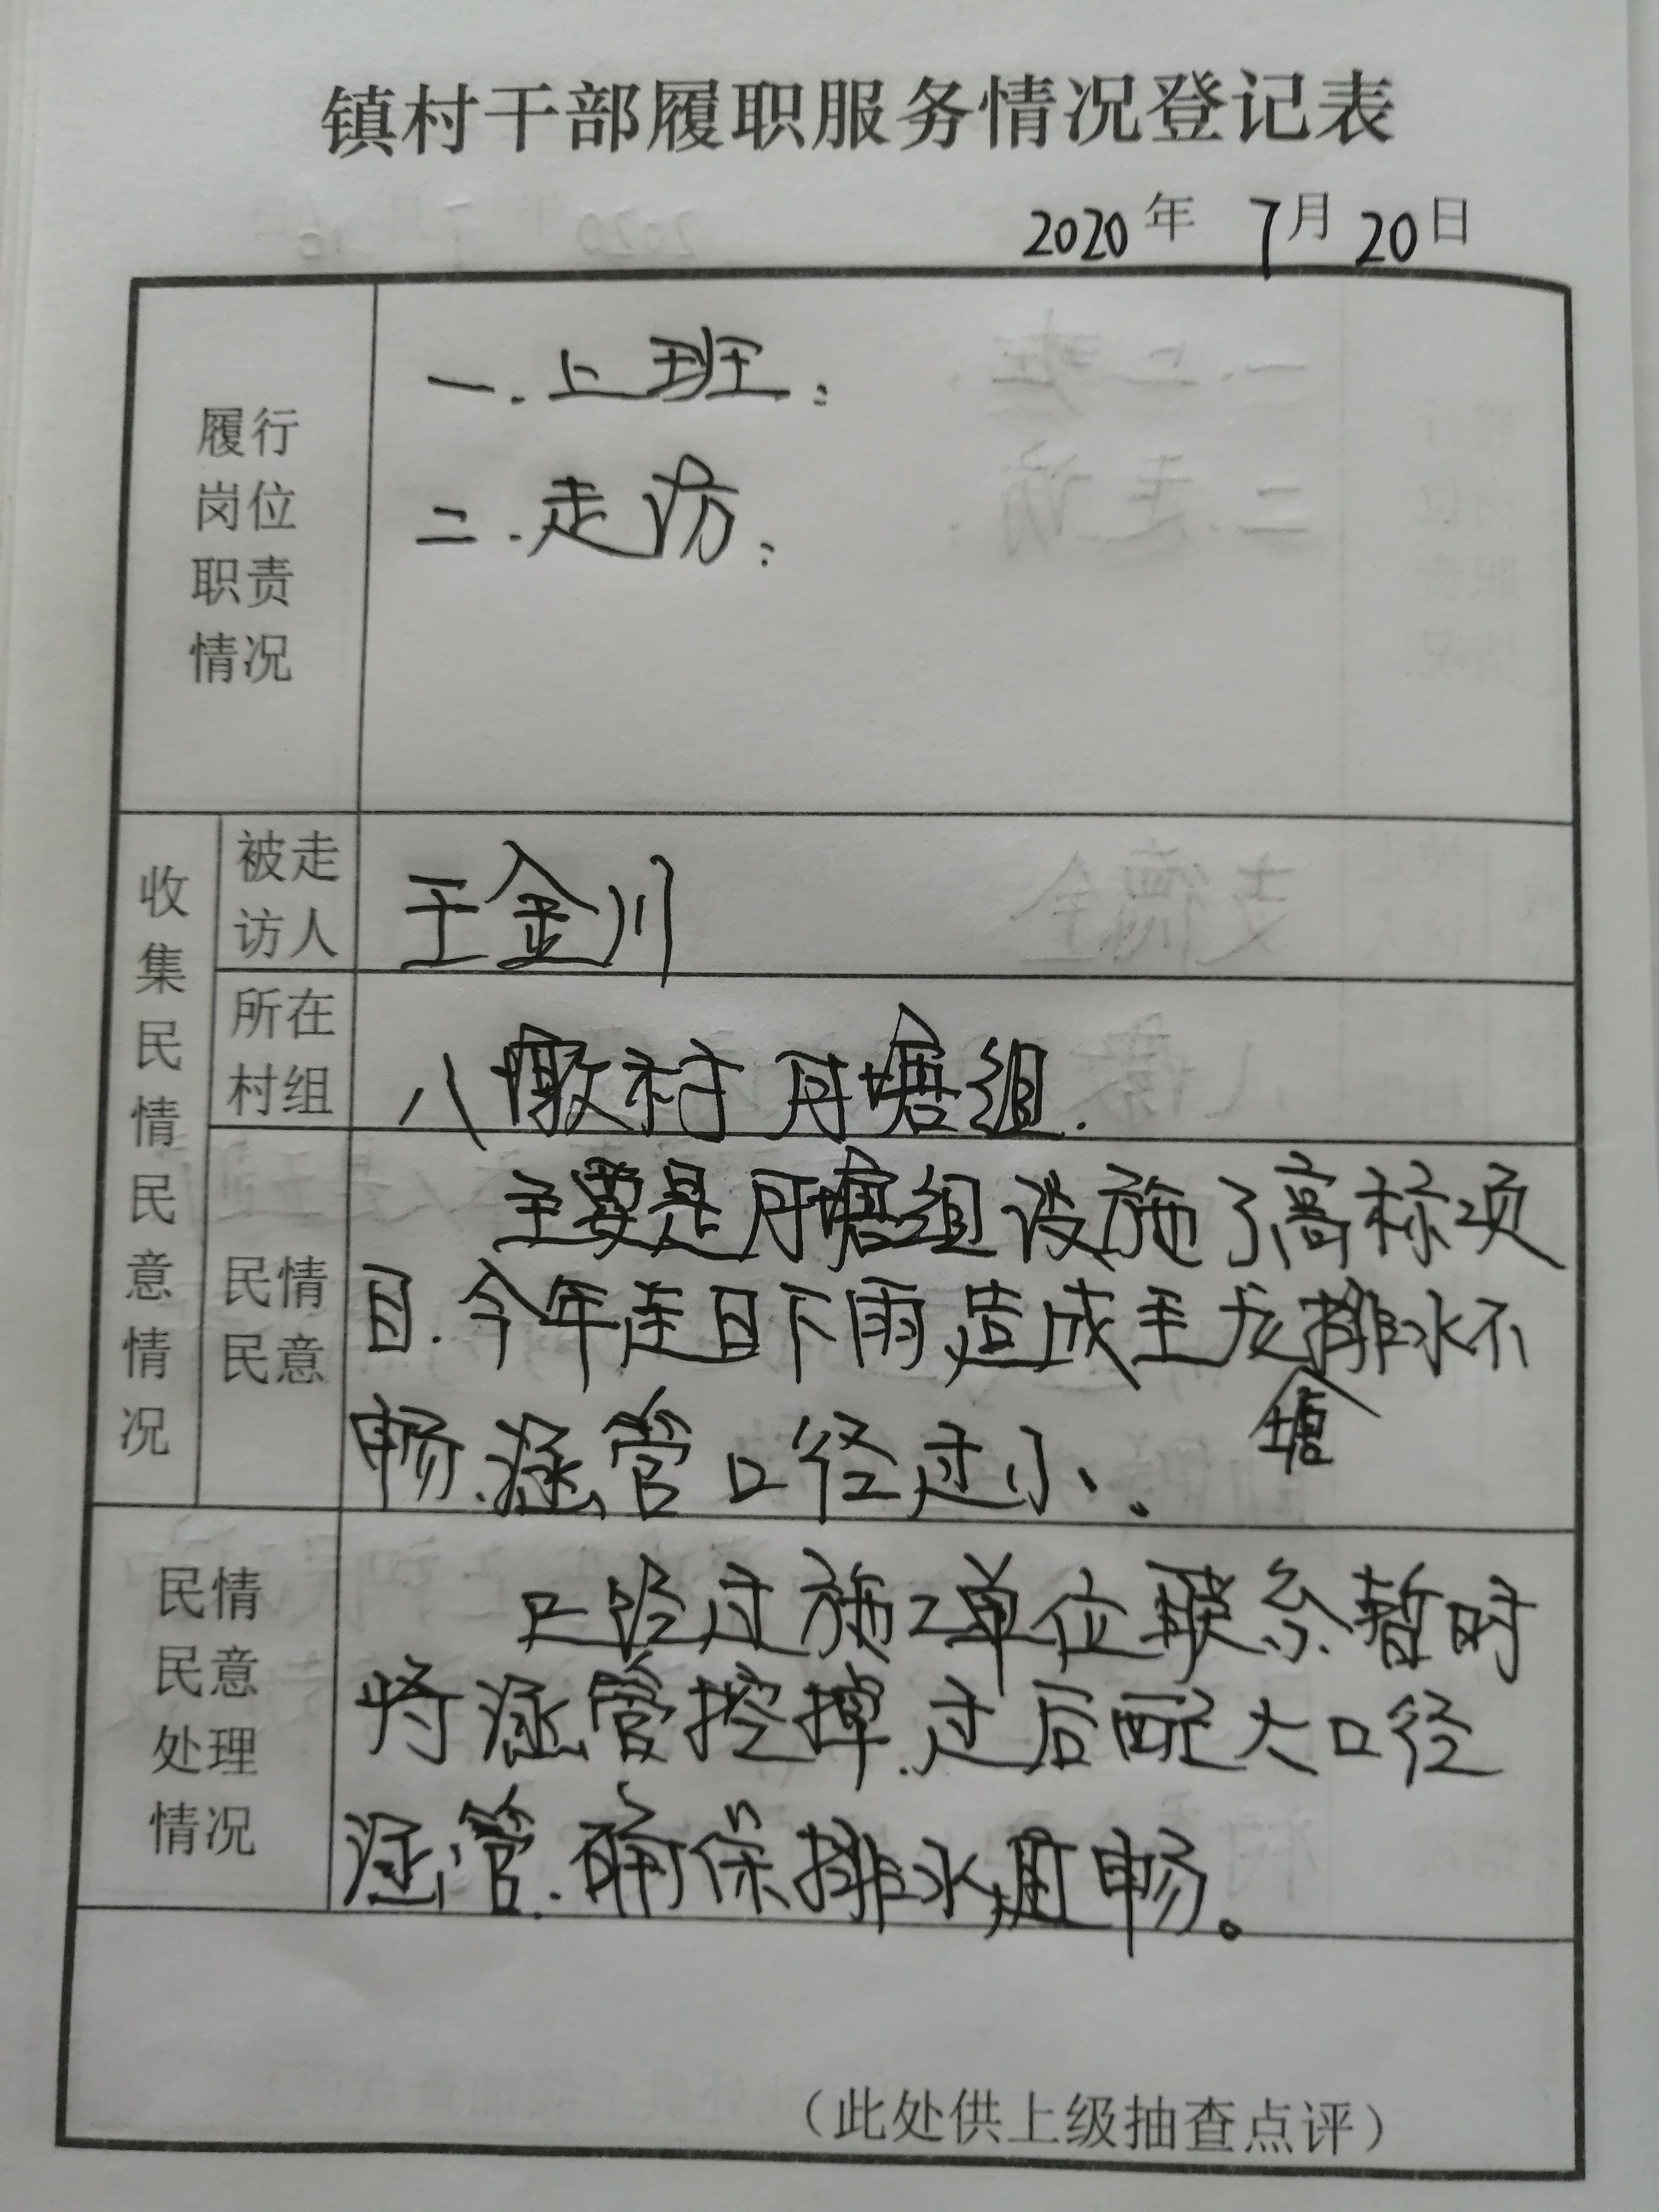 镇村干部履职服务情况登记表
2020年 7月20日
履行
岗位
职责
情况
一.上班:
二.走访:
收集民情民意情况
被走
访人
王金川
所在
村组
八墩村 月塘组.
民情
民意
主要是月塘组设施了高标项
目.今年连日下雨,造成王龙塘排水不
畅.涵管口径过小、。
民情
民意
处理
情况
已经过施工单位联系暂时
将涵管挖掉.过后配大口径
涵管.确保排水通畅。
(此处供上级抽查点评)